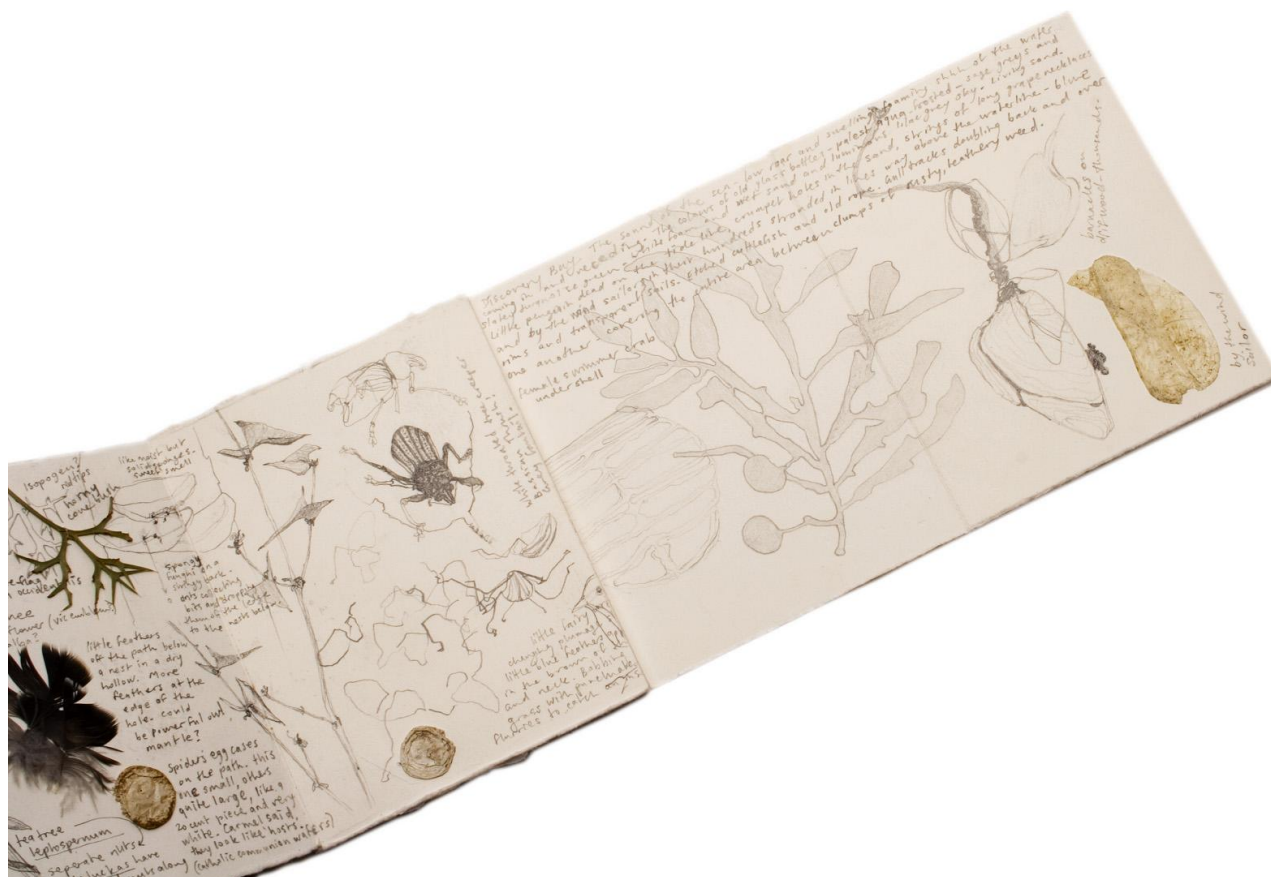 Isopogen?
redtips
horny
cone bush
like moist but
solid sponges.
sweet smell
occidentalis
flower
spongy
fungni on a
stringy bark.
ants collecting
bits and dropping
them off the ledge
to the nests below
little feathers
off the path below
a nest in a dry
hollow. More
feathers at the
edge of the
hole. could
be Powerful owl
mantle?
Spiders egg cases
on the path. this
one small, others
quite large, like a
20 cent piece and very
white. Carmel said,
they look like hosts.
(catholic communion wafers)
tea tree
leptospermum
seperate nuts
have
nuts along
white throated tree creeper
or Grey Shrike Thrush?
little fairy
changing plumage
little blue feathers
in the brown of
and neck. Bobbing
grass with
flutters to catch
Discovery Bay. The sound of the sea - low roar and swelling foaming shhh of the water
coming in and receding. The colour of old glass bottles - palest aqua, frosted - sage greys and
slated turquoise greens. White foam and wet sand and luminous lilac grey sky. Living sand.
Little penguin dead on the tide line, crumpet holes in the sand, strings of long grape necklaces
and by the wind sailors, hundreds stranded in lines way above the waterline - blue
rims and transparent sails. etched cuttlefish and old rope. Gull tracks doubling back and over
one another covering the entire area between clumps of rusty, leathery weed.
female swimmer crab
under shell
barnacles on
driftwood - thousands.
by the wind
sailor